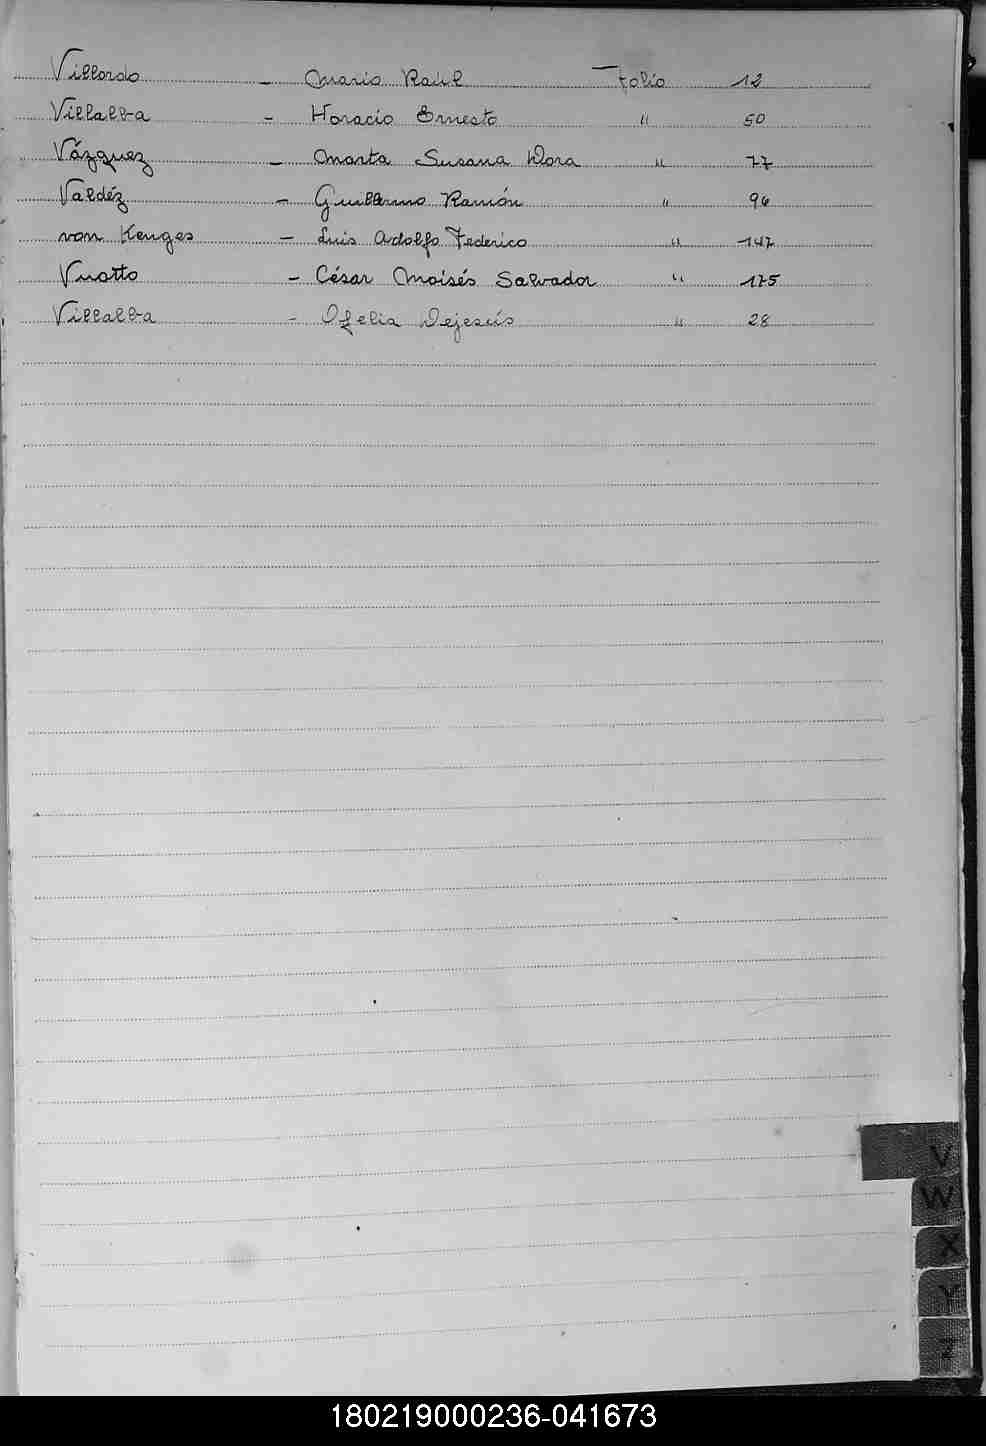 Villordo - Mario Raúl Folio 12
Villalba - Horacio Ernesto " 50
Vázquez - Marta Susana Dora " 77
Valdéz - Guillermo Ramón " 96
von Kenges - Luis Adolfo Federico " 147
Vuotto - César Moisés Salvador " 175
Villalba - Ofelia Dejesús " 28
V
W
X
Y
Z
180219000236-041673